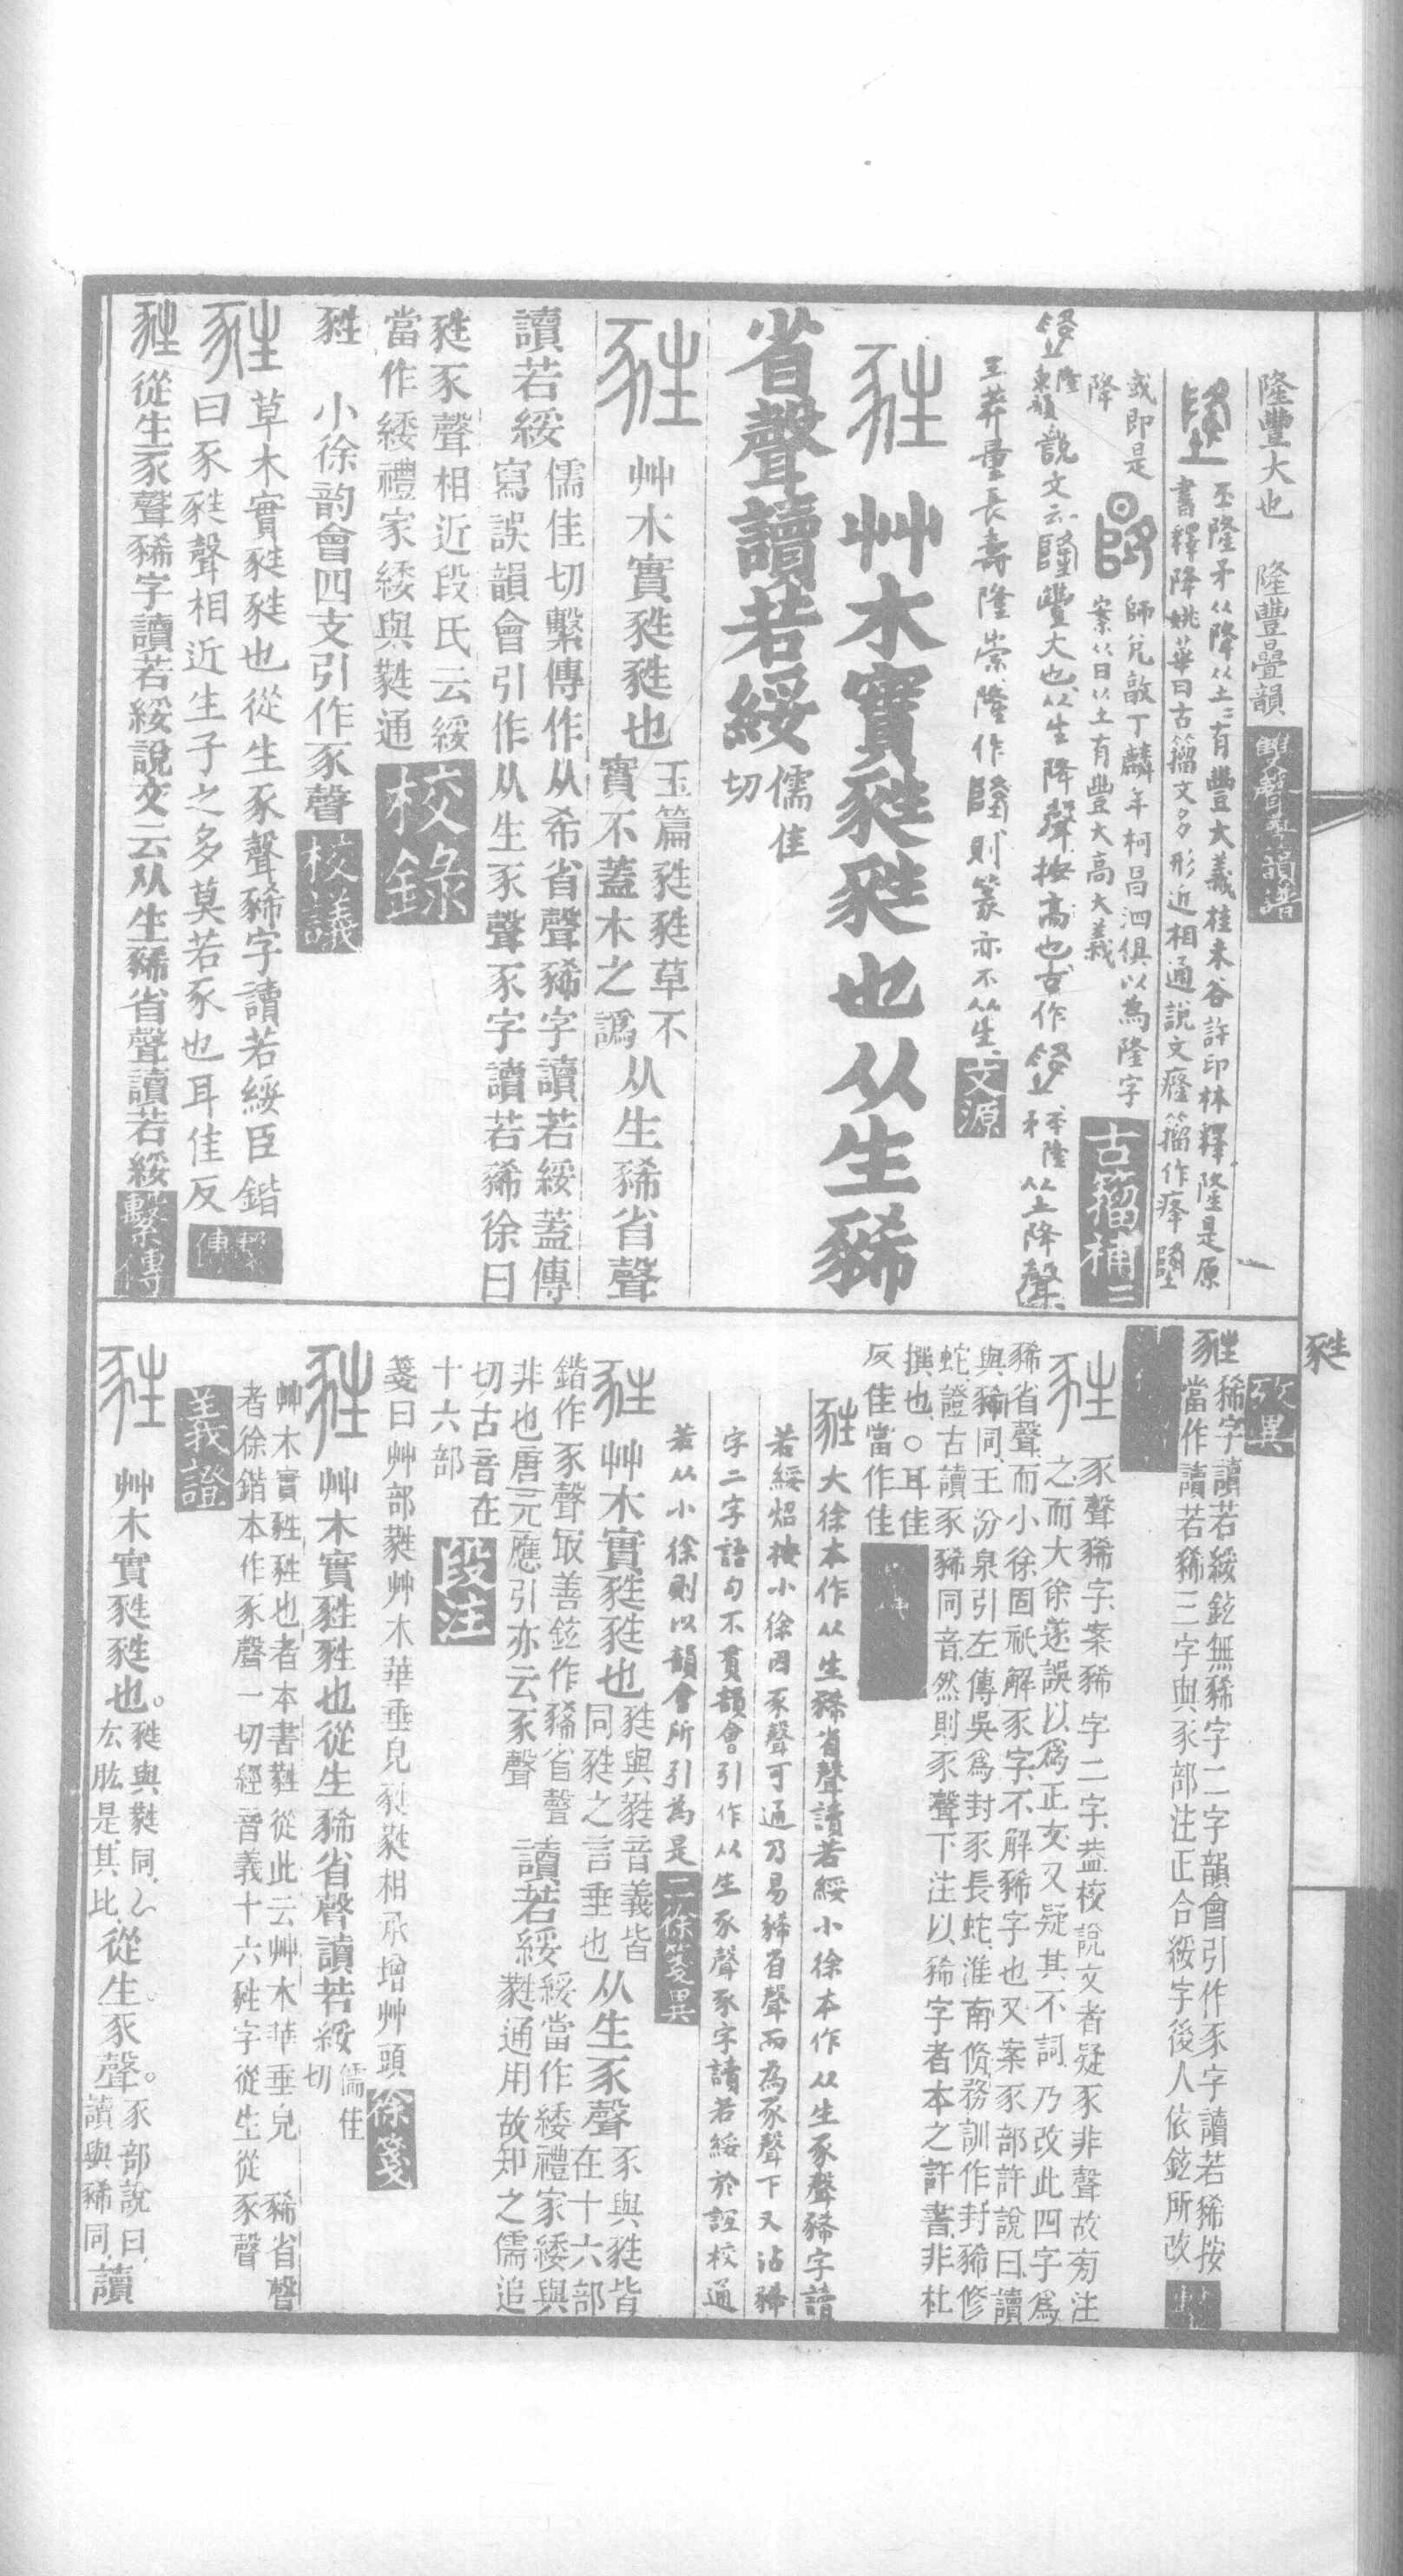 隆豐大也　隆豐疊韻　雙聲疊韻譜
丕隆矛从降从土土有豐大義桂未谷許印林釋隆是原
書釋降姚華曰古籀文多形近相通說文癃籀作㾭
或即是
降
師兌敦丁麟年柯昌泗俱以為隆字
案从日从土有豐大高大義　古籀補二
隆
東韻說文云隆豐大也从生降聲按高也古作　　隆从土降聲
王莽量長壽隆崇隆作　則篆亦不从生　文源
甤　艸木實甤甤也从生豨
省聲讀若綏　儒佳
切
甤　艸木實甤甤也　玉篇甤甤草不
實不蓋木之譌　从生豨省聲
讀若綏　儒佳切繫傳作从希省聲豨字讀若綏蓋傳
寫誤韻會引作从生豕聲豕字讀若豨徐曰
甤豕聲相近段氏云綏
當作緌禮家緌與蕤通　校錄
甤　小徐韵會四支引作豕聲　校議
甤　草木實甤甤也從生豕聲豨字讀若綏臣鍇
曰豕甤聲相近生子之多莫若豕也耳佳反　繫傳
甤　從生豕聲豨字讀若綏說文云从生豨省聲讀若綏　繫傳
攷異
甤　豨字讀若綏鉉無豨字二字韻會引作豕字讀若豨按
當作讀若豨三字與豕部注正合綏字後人依鉉所改
甤　豕聲豨字案豨字二字蓋校說文者疑豕非聲故旁注
之而大徐遂誤以爲正文又疑其不詞乃改此四字爲
豨省聲而小徐固祇解豕字不解豨字也又案豕部許說曰讀
與豨同王汾泉引左傳吳爲封豕長蛇淮南脩務訓作封豨修
蛇證古讀豕豨同音然則豕聲下注以豨字者本之許書非杜
撰也○耳佳
反佳當作隹
甤　大徐本作从生豨省聲讀若綏小徐本作从生豕聲豨字讀
若綏炤按小徐因豕聲可通乃易豨省聲而為豕聲下又沾豨
字二字語句不貫韻會引作从生豕聲豕字讀若綏於誼校通
若从小徐則以韻會所引為是　二徐箋異
甤　艸木實甤甤也　甤與蕤音義皆
同甤之言垂也　从生豕聲　豕與甤皆
在十六部
鍇作豕聲㝡善鉉作豨省聲
非也唐元應引亦云豕聲　讀若綏　綏當作緌禮家緌與
蕤通用故知之儒追
切古音在
十六部　段注
箋曰艸部蕤艸木華垂皃甤蕤相承增艸頭　徐箋
甤　艸木實甤甤也從生豨省聲讀若綏　儒佳
切
艸木實甤甤也者本書蕤從此云艸木華垂皃　豨省聲
者徐鍇本作豕聲一切經音義十六甤字從生從豕聲
義證
甤　艸木實甤甤也。　甤與蕤同厶
厷肱是其比　從生豕聲。　豕部說曰
讀與豨同　讀
甤